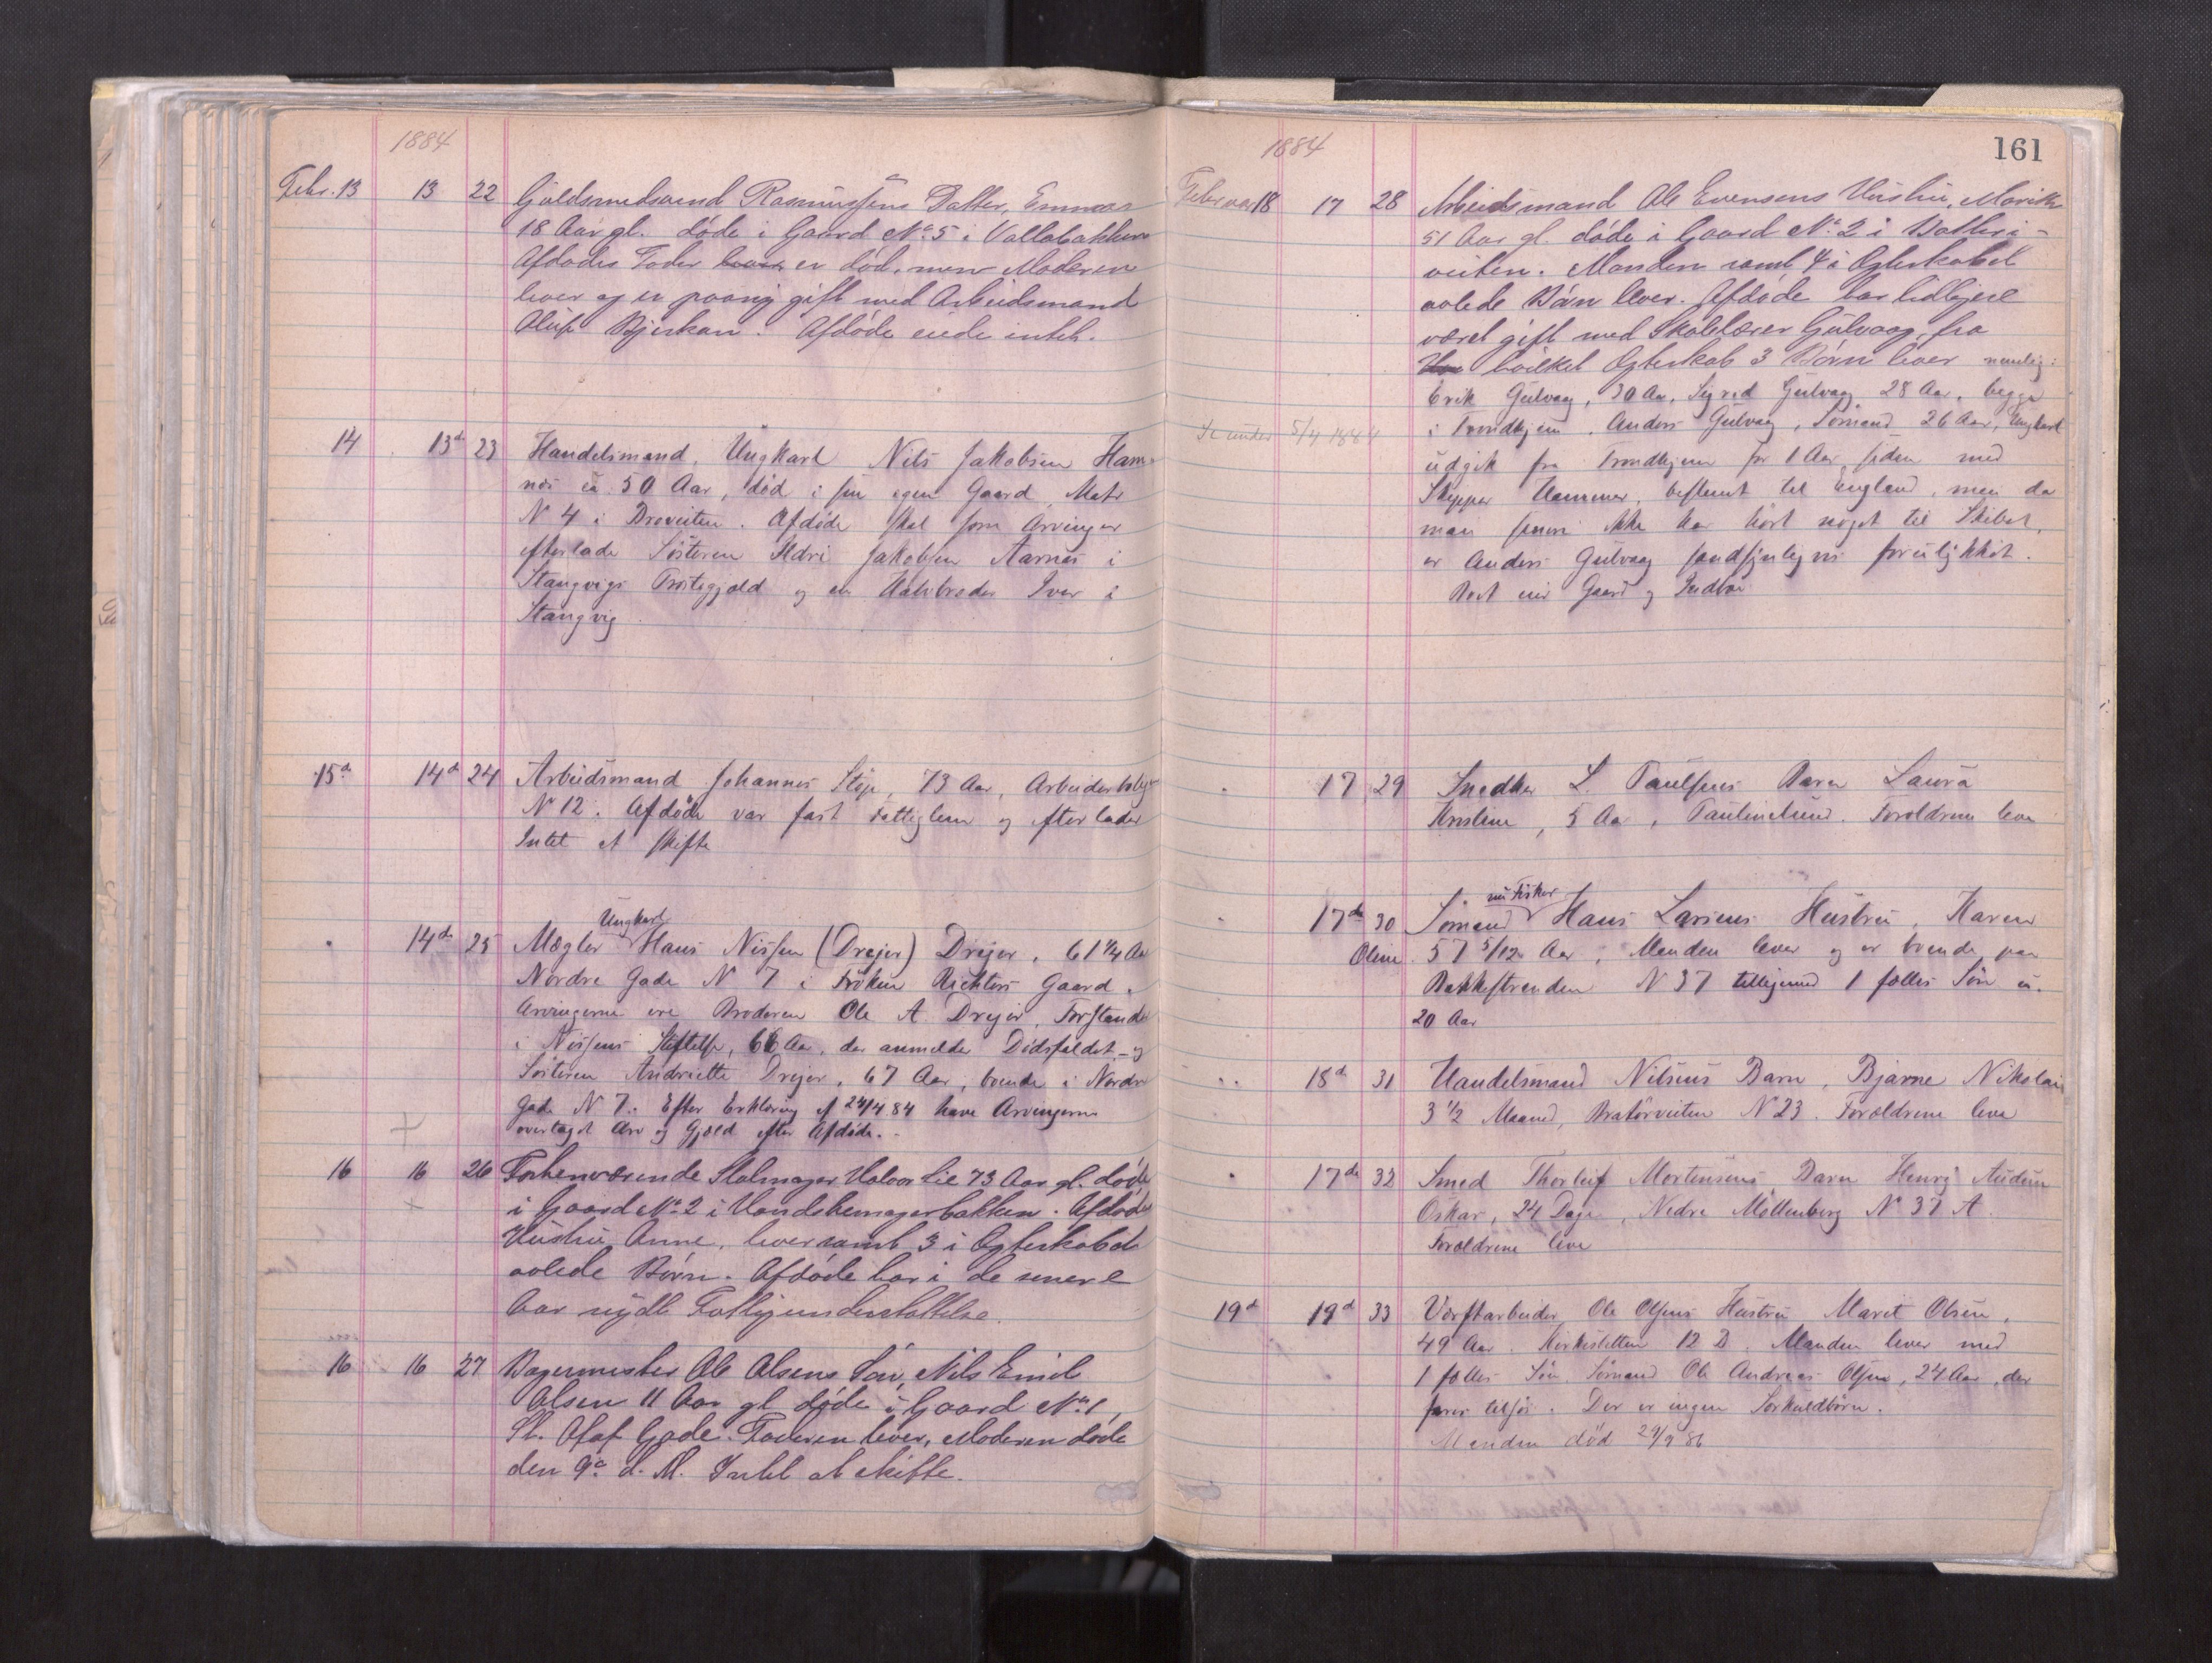 1884
Febr. 13 13 22 Guldsmedsvend Rasmussens Datter, Emma
18 Aar gl. døde i Gaard No. 5 i Vollabakken
Afdødes Fader er død, men Moderen
lever og er paany gift med Arbeidsmand
Oluf Bjerkan. Afdøde eiede intet.
14 13d 23 Handelsmand, Ungkarl Nils Jakobsen Ham-
nes ca. 50 Aar, død i sin egen Gaard, Matr
N 4 i Draveiten. Afdøde skal som Arvinger
efterlade Søsteren Ildri Jakobsen Aarnes i
Stangvigs Præstegjæld og en Halvbroder Iver i
Stangvig
15d 14d 24 Arbeidsmand Johannes Støp, 73 Aar, Arbeiderbolig
N 12. Afdøde var fast Fattiglem og efterlader
Intet at skifte
Ungkarl
14de 25 Mægler Hans Nissen (Drejer) Drejer, 61 1/4 Aar
Nordre Gade N 7 i Frøken Richters Gaard.
Arvingerne ere Broderen Ole A. Drejer, Forstander
i Nissens Stiftelse, 66 Aar, der anmelder Dødsfaldet, og
Søsteren Andriette Drejer, 67 Aar, boende i Nordre
Gade N 7. Efter Erklæring af 24/4 84 have Arvingerne
overtaget Arv og Gjæld efter Afdøde.
16 16 26 Forhenværende Stolmager Halvor Lie 73 Aar gl. døde
i Gaard No. 2 i Handskemagerbakken. Afdødes
Hustru Anne, lever samt 3 i Ægteskabet
avlede Børn. Afdøde har i de senere
Aar nydt Fattigunderstøttelse.
16 16 27 Bagermester Ole Olsens Søn, Nils Emil
Olsen 11 Aar gl døde i Gaard No. 1,
St. Olaf Gade. Faderen lever, Moderen døde
den 9de d. M. Intet at skifte.
161
1884
Februar 18 17 28 Arbeidsmand Ole Evensens Hustru, Marith
51 Aar gl. døde i Gaard No. 2 i Batteri-
veiten. Manden samt 4 i Ægteskabet
avlede Børn lever. Afdøde har tidligere
været gift med Skolelærer Gulvaag, fra
hvilket Ægteskab 3 Børn lever nemlig:
Erik Gulvaag, 30 Aar, Sigrid Gulvaag 28 Aar, begge
Se under 5/4 1884 i Trondhjem, Anders Gulvaag, Sømand 26 Aar, Ungkarl
udgik fra Trondhjem for 1 Aar siden med
Skipper Hammer, bestemt til England, men da
man senere ikke har hørt noget til Skibet,
er Anders Gulvaag sandsynligvis forulykket.
Boet eier Gaard og Indbo
17 29 Snedker L. Paulsens Barn Laura
Kristine, 5 Aar, Paulinelund. Forældrene leve
nu Fisker
17de 30 Sømand Hans Larsens Hustru, Karen
Oline 57 5/12 Aar, Manden lever og er boende paa
Bakkestranden N 37 tilligemed 1 fælles Søn ca.
20 Aar
18d 31 Handelsmand Nilsens Barn, Bjarne Nikolai
3 1/2 Maaned, Bratørveiten N 23. Forældrene leve
17de 32 Smed Thorleif Mortensens Barn Henry Audun
Oskar, 24 Dage, Nedre Møllenberg N 37 A.
Forældrene leve
19d 19d 33 Værftarbeider Ole Olsens Hustru Marit Olsen,
49 Aar. Kirkesletten 12 B. Manden lever med
1 fælles Søn Sømand Ole Andreas Olsen, 24 Aar, der
farer tilsjøs. Der er ingen Særkuldbørn.
Manden død 29/9 86